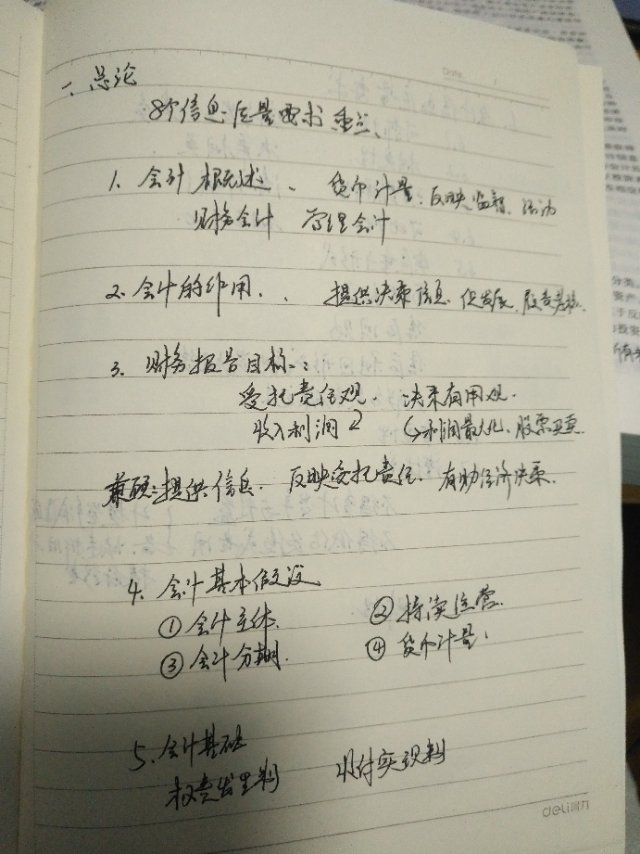 Date.
一、总论
8个信息质量要求 重点、
1. 会计概述、 货币计量、反映监督、活动
财务会计 管理会计
2. 会计的作用、 提供决策信息 促发展、
3. 财务报告目标:
受托责任观、 决策有用观、
收入利润 利润最大化、股票
兼顾:提供信息、 反映受托责任、 有助经济决策.
4. 会计基本假设
① 会计主体. ② 持续经营.
③ 会计分期. ④ 货币计量.
5. 会计基础
权责发生制 收付实现制
deli得力